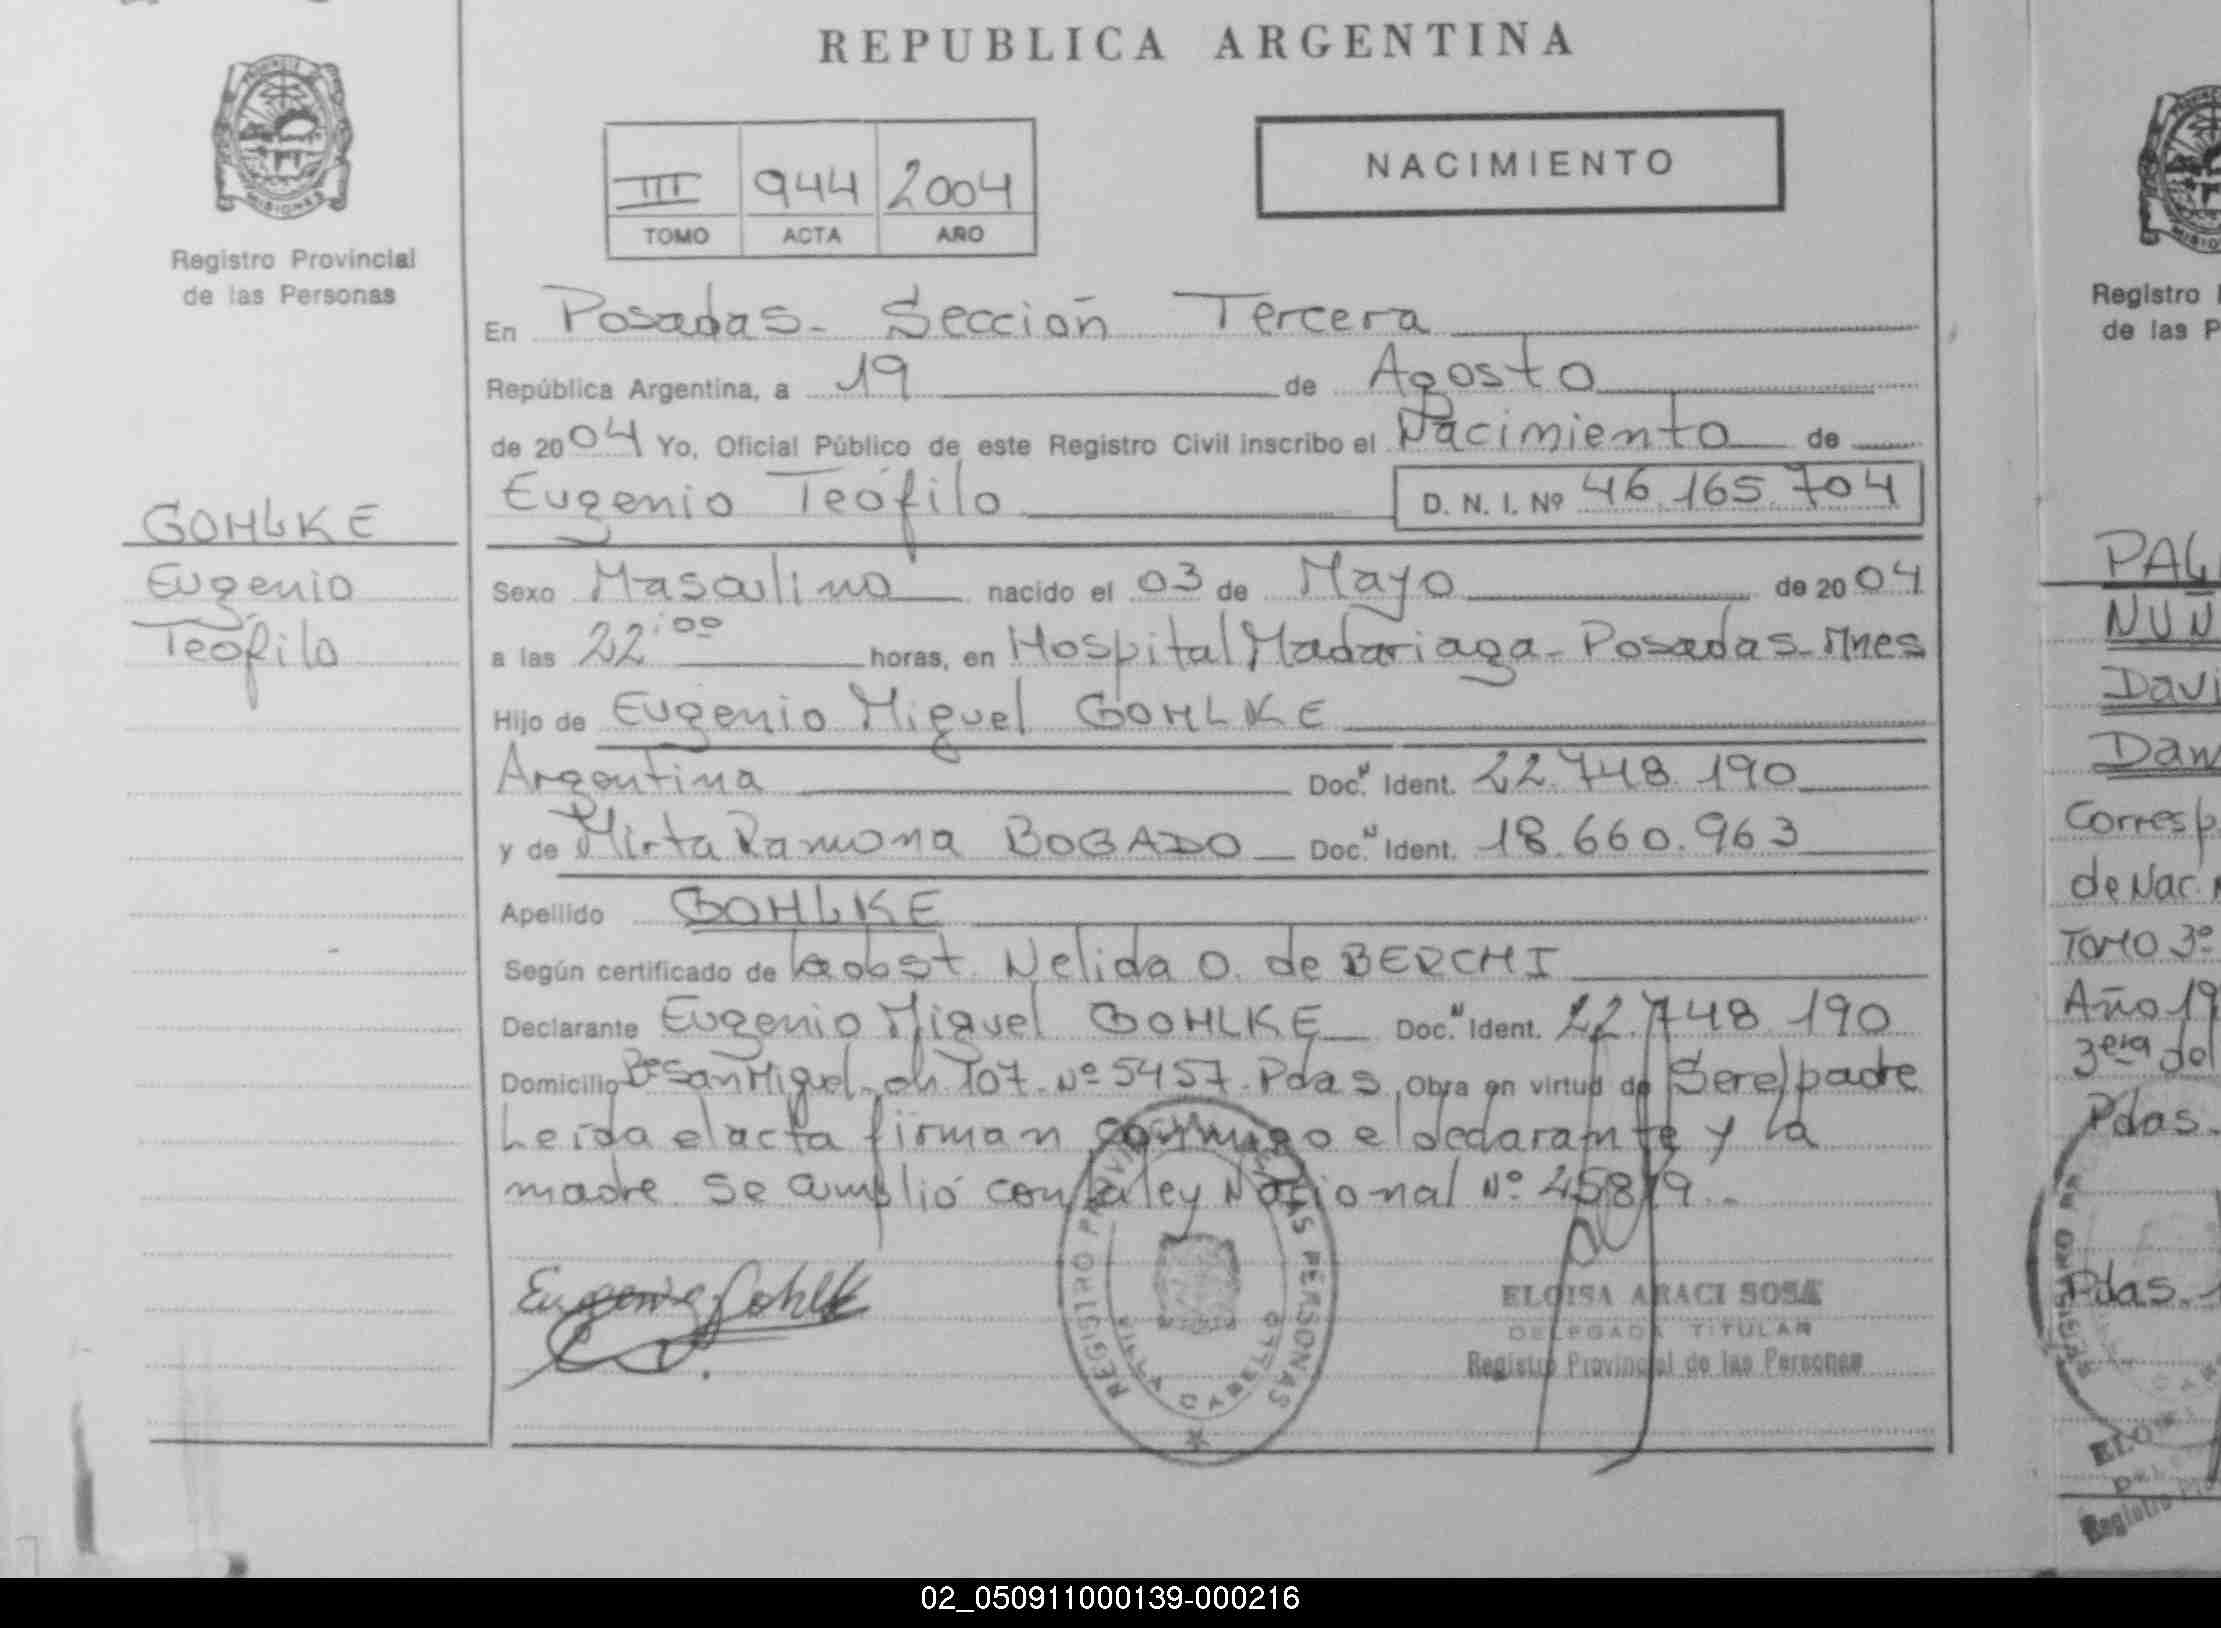 REPUBLICA ARGENTINA
PROVINCIA DE
MISIONES
Registro Provincial
de las Personas
III 944 2004
TOMO ACTA AÑO
NACIMIENTO
En Posadas- Sección Tercera
República Argentina, a 19 de Agosto
de 2004 Yo, Oficial Público de este Registro Civil inscribo el Nacimiento de
Eugenio Teófilo D. N. I. Nº 46.165.704
GOHLKE
Eugenio
Teófilo
Sexo Masculino nacido el 03 de Mayo de 2004
a las 22:00 horas, en Hospital Madariaga- Posadas- Mnes
Hijo de Eugenio Miguel GOHLKE
Argentina Doc. Ident. 22.748.190
y de Mirta Ramona BOGADO Doc. Ident. 18.660.963
Apellido GOHLKE
Según certificado de la obst. Nelida O. de BERCHI
Declarante Eugenio Miguel GOHLKE Doc. Ident. 22.748 190
Domicilio Bº San Miguel ch 107. Nº 5457. Pdas. Obra en virtud de Ser el padre
Leída el acta firman conmigo el declarante y la
madre. Se cumplió con la ley Nacional Nº
Eugenio Gohlke
REGISTRO PROVINCIAL DE LAS PERSONAS
VILLA CABELLO
ELOISA ARACI SOSA
DELEGADA TITULAR
Registro Provincial de las Personas
Registro
de las P
PAL
NUÑ
Davi
Dan
Corresp.
de Nac.
TOMO 3º
Año 19
3era del
Pdas.
Pdas.
02_050911000139-000216